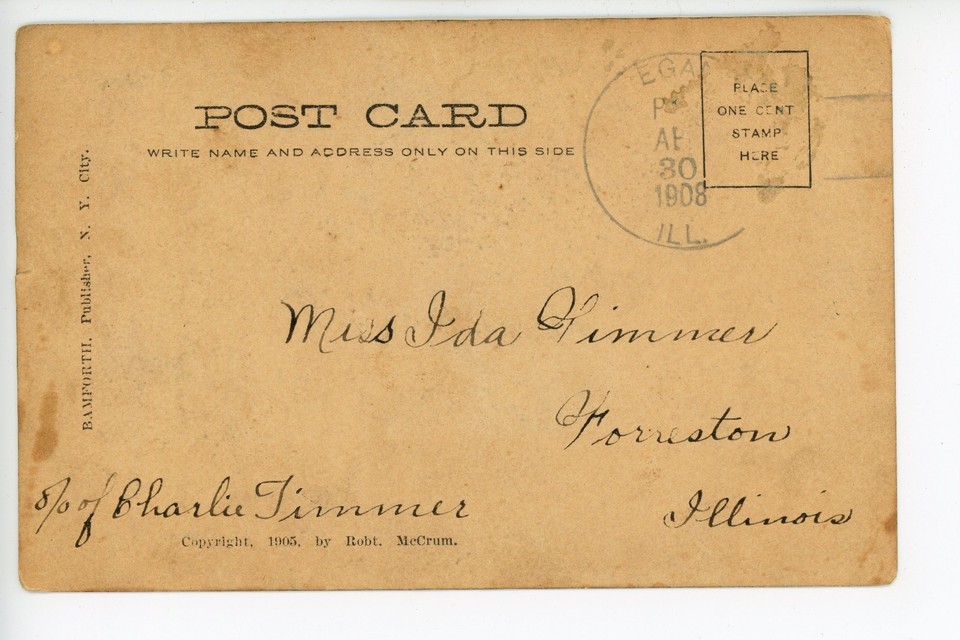 POST CARD
WRITE NAME AND ADDRESS ONLY ON THIS SIDE
PLACE
ONE CENT
STAMP
HERE
EGA
P
AP
30
1908
ILL.
BAMFORTH, Publisher, N. Y. City.
Miss Ida Timmer
Forreston
Illinois
c/o of Charlie Timmer
Copyright, 1905, by Robt. McCrum.